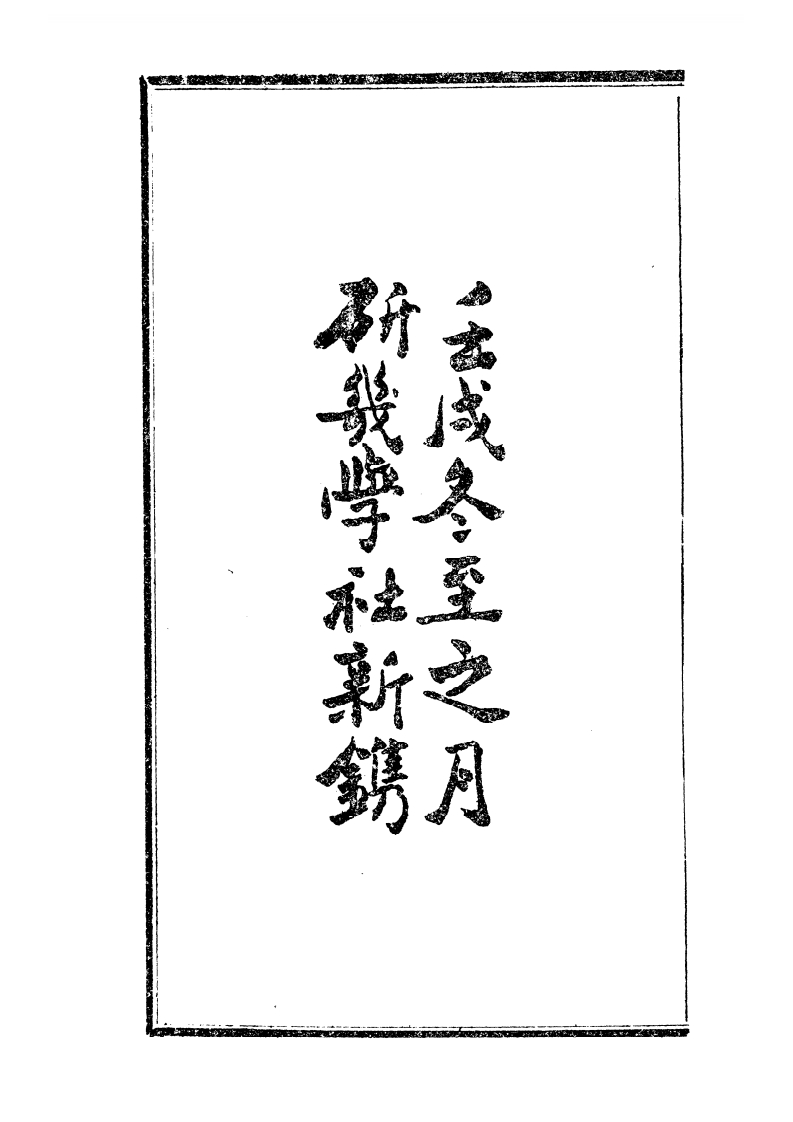 壬戌冬至之月
研幾學社新鐫